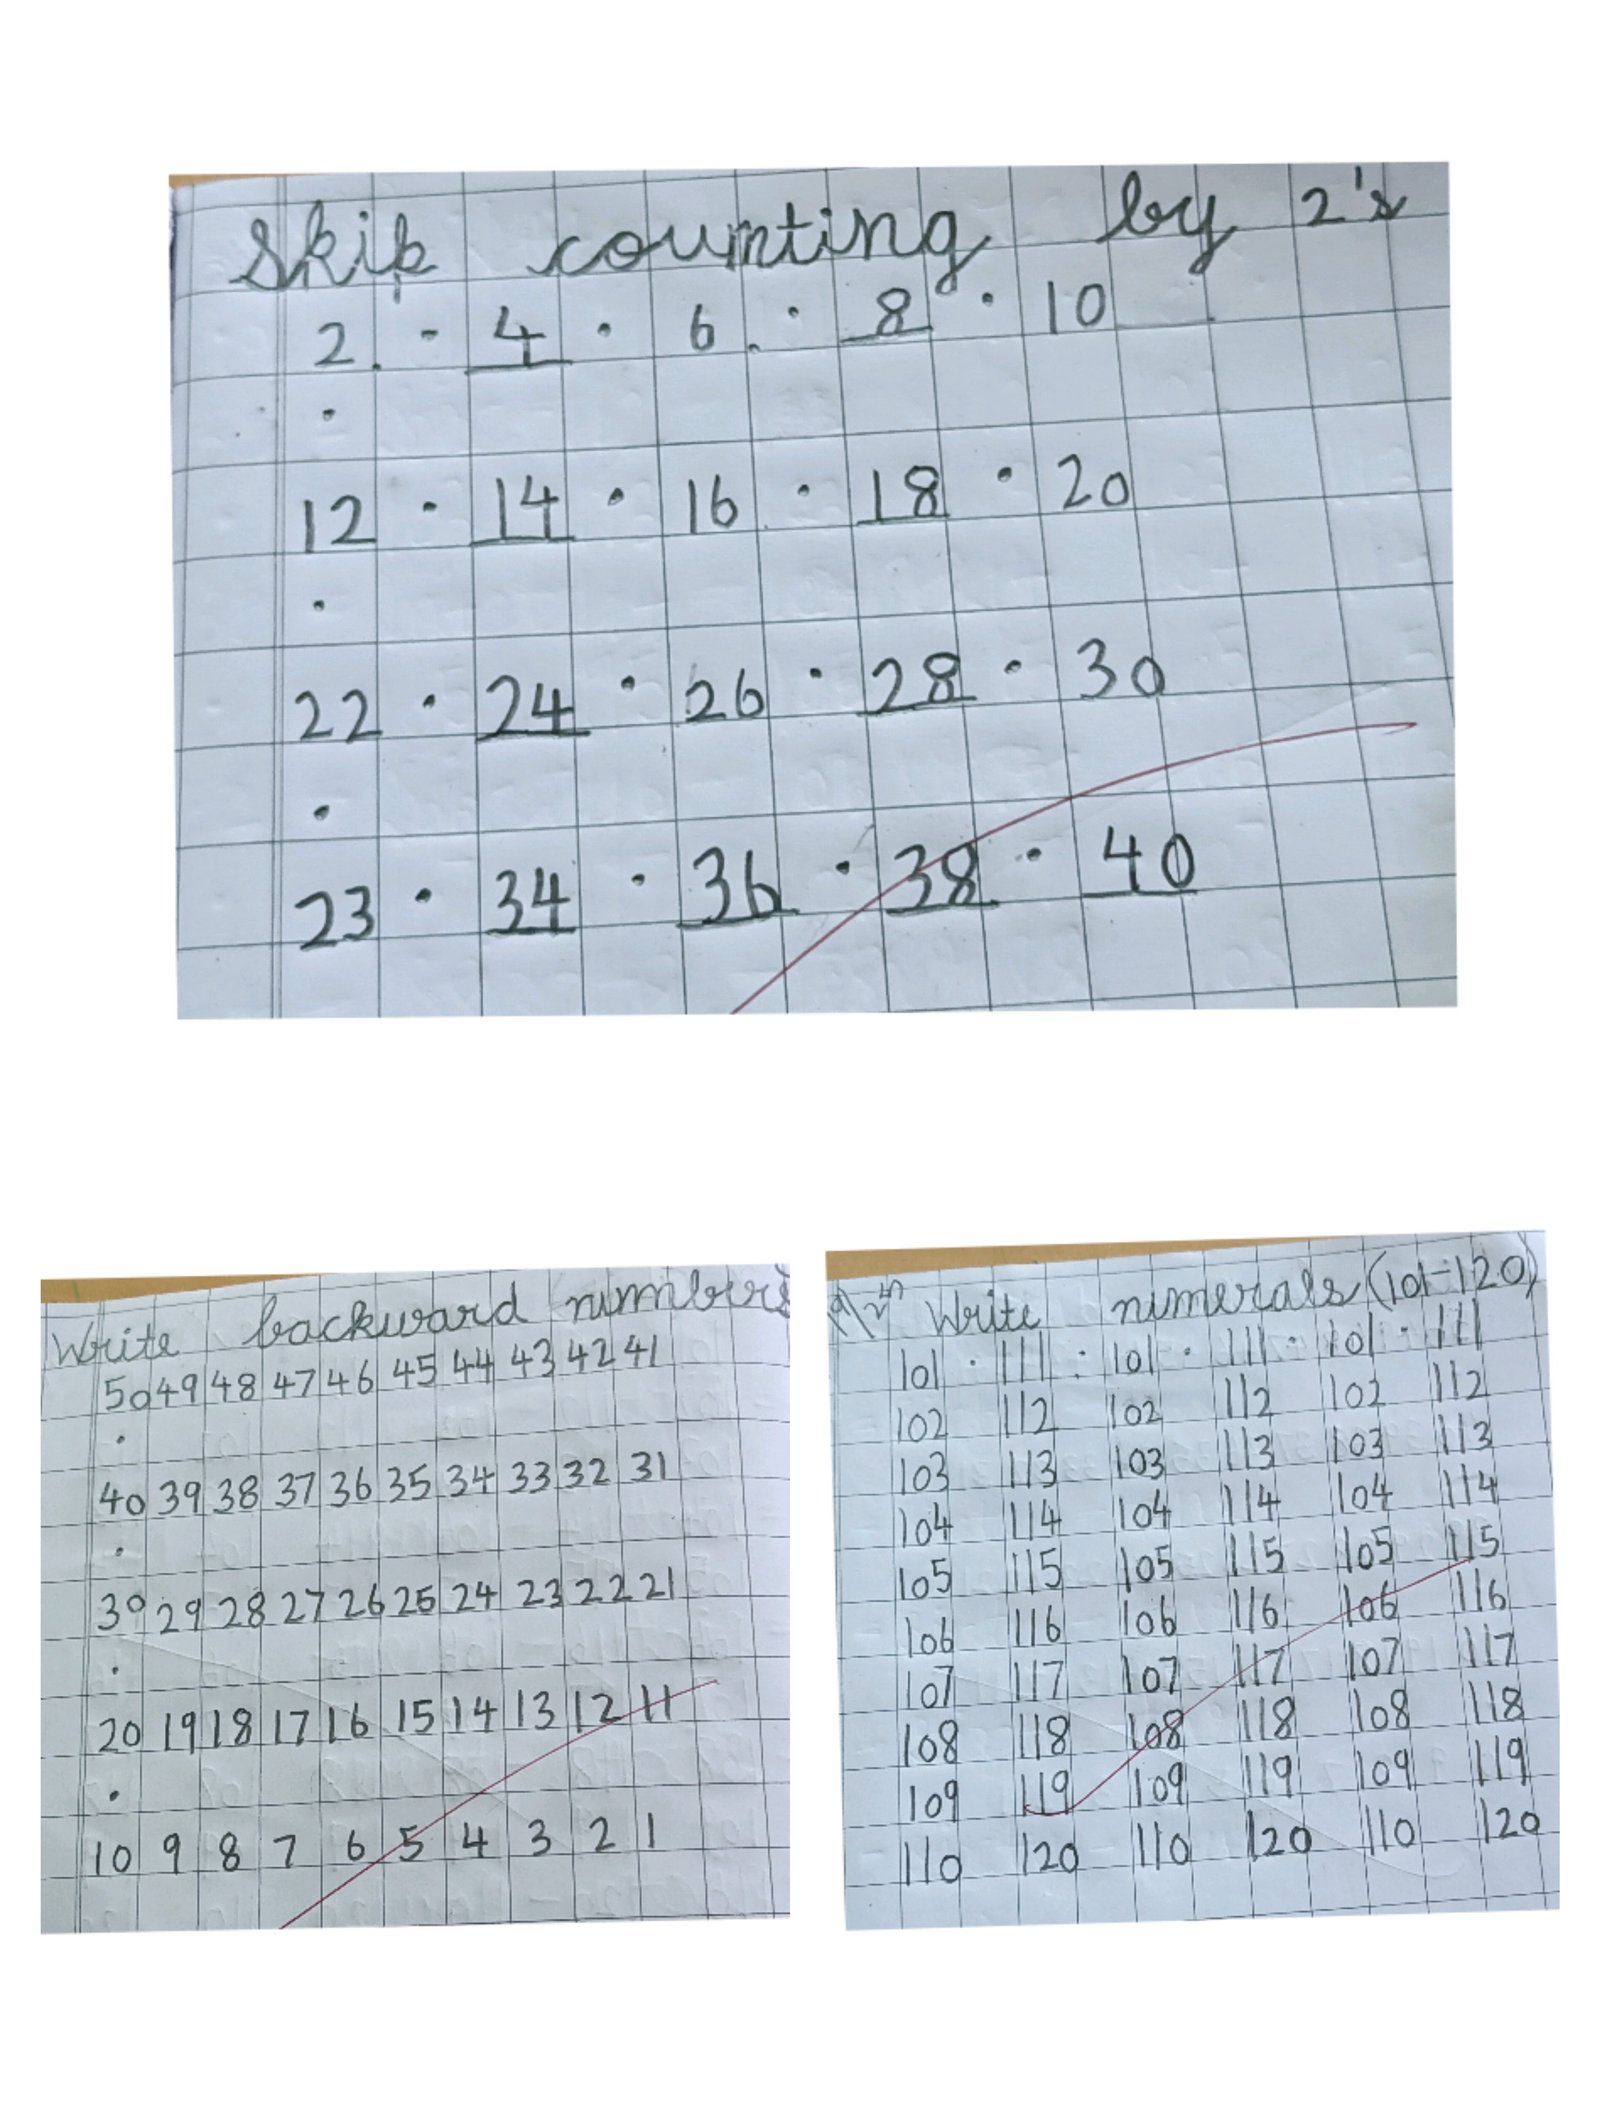 Skip counting by 2's
2 · 4 · 6 · 8 · 10
12 · 14 · 16 · 18 · 20
22 · 24 · 26 · 28 · 30
23 · 34 · 36 · 38 · 40
Write backward numbers
50 49 48 47 46 45 44 43 42 41
40 39 38 37 36 35 34 33 32 31
30 29 28 27 26 25 24 23 22 21
20 19 18 17 16 15 14 13 12 11
10 9 8 7 6 5 4 3 2 1
Write numerals (101-120)
101 · 111 · 101 · 111 · 101 · 111
102 112 102 112 102 112
103 113 103 113 103 113
104 114 104 114 104 114
105 115 105 115 105 115
106 116 106 116 106 116
107 117 107 117 107 117
108 118 108 118 108 118
109 119 109 119 109 119
110 120 110 120 110 120